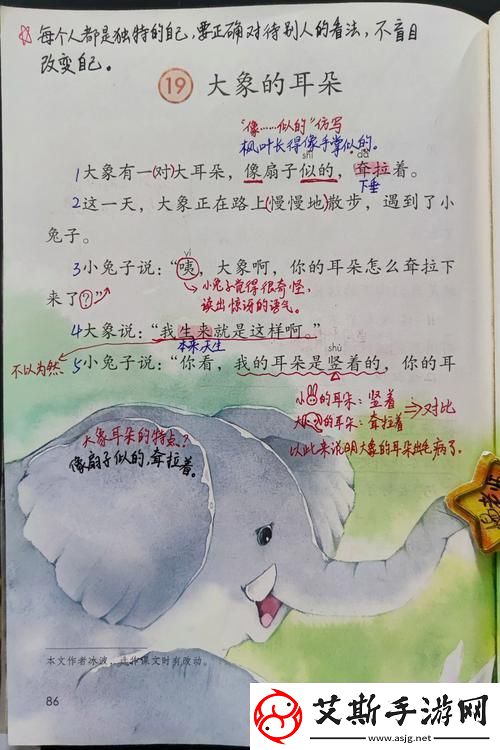 每个人都是独特的自己，要正确对待别人的看法，不盲目
改变自己。
19 大象的耳朵
“像……似的”仿写
枫叶长得像手掌似的。
shì dā
1大象有一(对)大耳朵，像扇子似的，耷拉着。
下垂
2这一天，大象正在路上(慢慢地)散步，遇到了小
兔子。
yí
3小兔子说：“咦，大象啊，你的耳朵怎么耷拉下
来了？”
小兔子觉得很奇怪，
读出惊讶的语气。
4大象说：“我生来就是这样啊。”
本来 天生
shù
不以为然
5小兔子说：“你看，我的耳朵是竖着的，你的耳
小 的耳朵：竖着
大 的耳朵：耷拉着
⇒对比
以此来说明大象的耳朵出毛病了。
大象耳朵的特点？
像扇子似的，耷拉着。
本文作者冰波，选作课文时有改动。
86
艾斯手游网
www.asjg.net